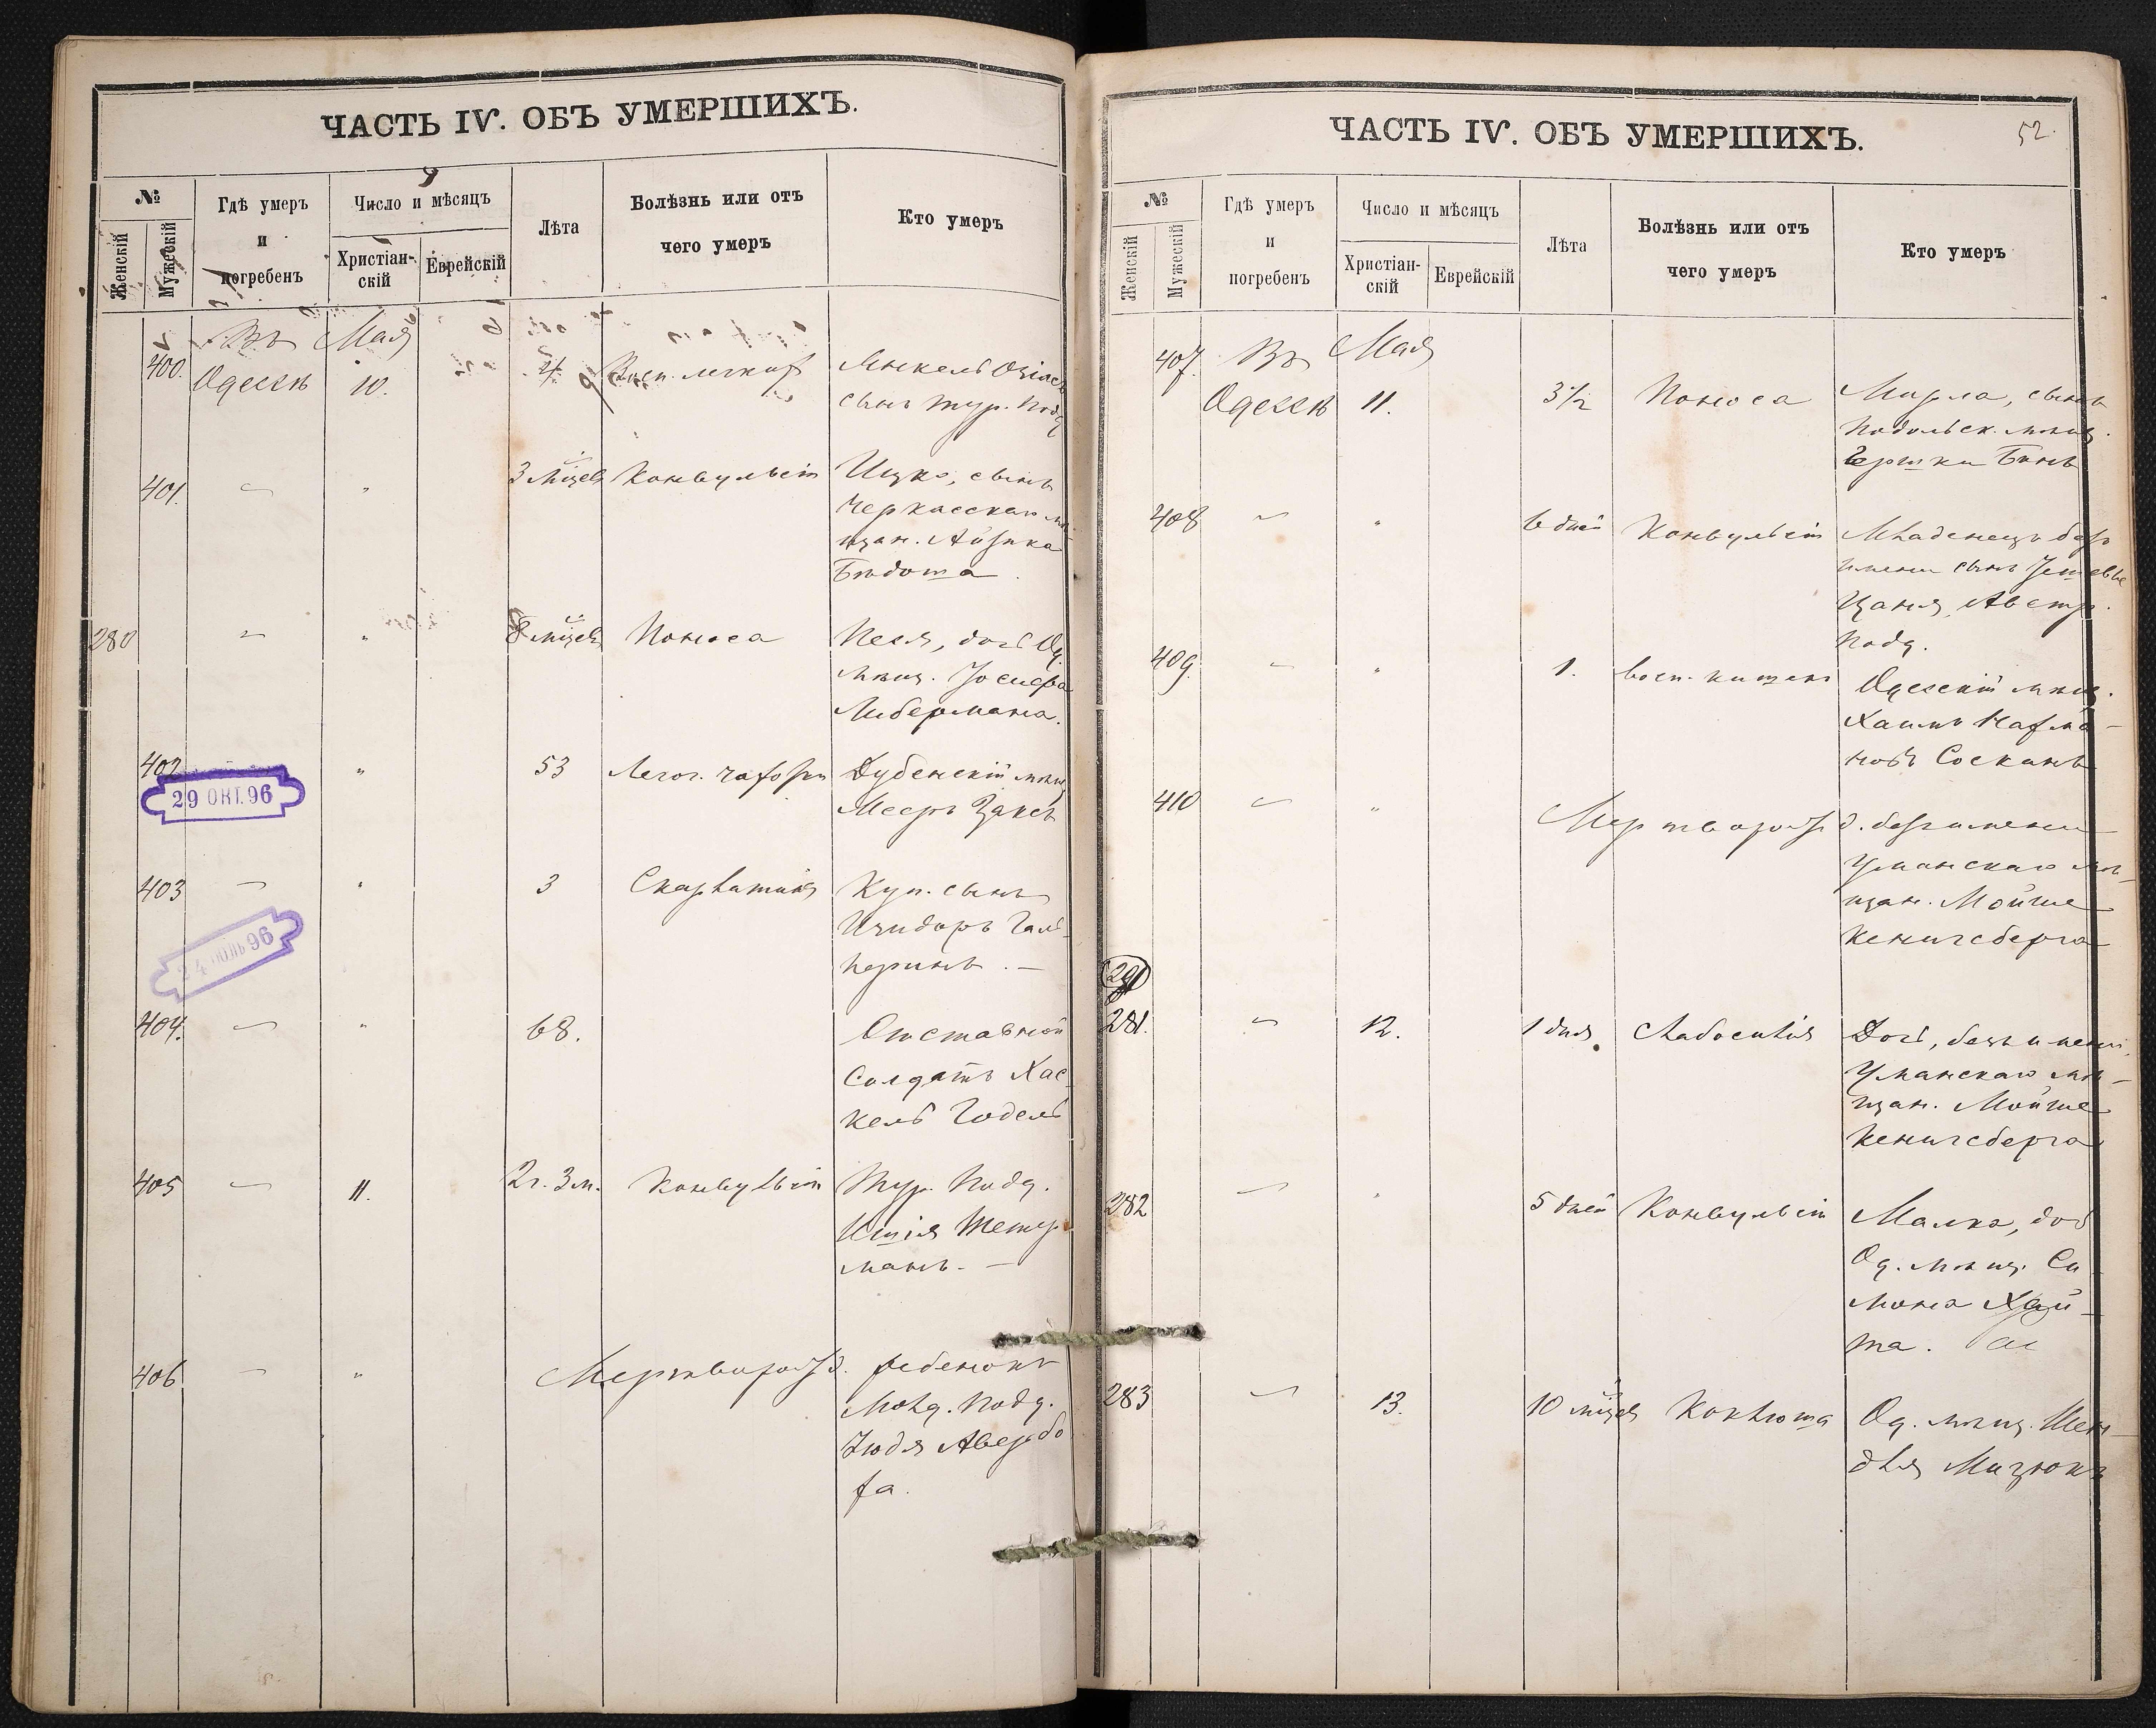 ЧАСТЬ IV. ОБЪ УМЕРШИХЪ.
№
Женскій
Мужескій
Гдѣ умеръ
и
погребенъ
Число и мѣсяцъ
Христіан-
скій
Еврейскій
Лѣта
Болѣзнь или отъ
чего умеръ
Кто умеръ
Въ Мая
400. Одессѣ 10. 4 Восп. легких
сынъ тур. подд
401. " 3 мѣсев Конвульсіи Ицко, сынъ
Черкасскаго мѣ-
щан. Айзика
280 " 8 мѣсев Поноса Песя, дочь Од.
мѣщ. Іосифа
Либермана.
402 " 53 Легоч. чахотки Дубенскій мѣщ
Мееръ Заксъ
29 ОКТ. 96
403 " 3 Скарлатина Куп. сынъ
Изидоръ Галь-
перинъ. —
24 ІЮЛЬ 96
404. " 68. Отставной
Солдатъ Хас-
кель Годель
405 11. 2 г. 3 м. Конвульсіи Тур. Подд.
манъ. —
406 " Мертворожд. ребенокъ
Молд. Подд.
Зюдя Авербо
ха.
ЧАСТЬ IV. ОБЪ УМЕРШИХЪ.
52.
№
Женскій
Мужескій
Гдѣ умеръ
и
погребенъ
Число и мѣсяцъ
Христіан-
скій
Еврейскій
Лѣта
Болѣзнь или отъ
чего умеръ
Кто умеръ
407. Въ Мая
Одессѣ 11. 3 1/2 Поноса сынъ
Подольск. мѣщ.
Гершки
408 " 6 дней Конвульсіи Младенецъ безъ
имени сынъ
Австр.
Подд.
409. " 1. Восп. кишекъ Одесскій мѣщ.
Хаимъ Нахма-
новъ Соскинъ
410 " Мертворожд. безъ имени
Уманскаго мѣ-
щан. Мойше
Кенигсберга
291
281. 12. 1 дня Слабосилія Дочь, безъ имени,
Уманскаго мѣ-
щан. Мойше
Кенигсберга
282 " 5 дней Конвульсіи Малка, доч
Од. мѣщ. Си
мона Хаи-
та.
283 13. 10 мѣсев Коклюша Од. мѣщ. Шен-
для Мазюкъ